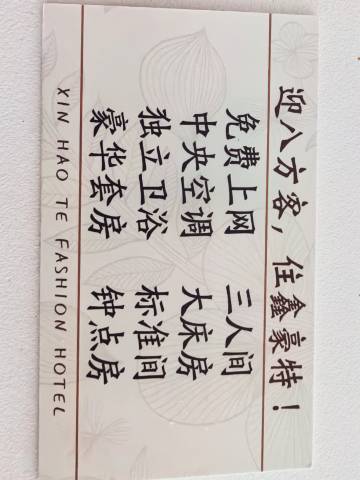 迎八方客，住鑫豪特！
免费上网 三人间
中央空调 大床房
独立卫浴 标准间
豪华套房 钟点房
XIN HAO TE FASHION HOTEL